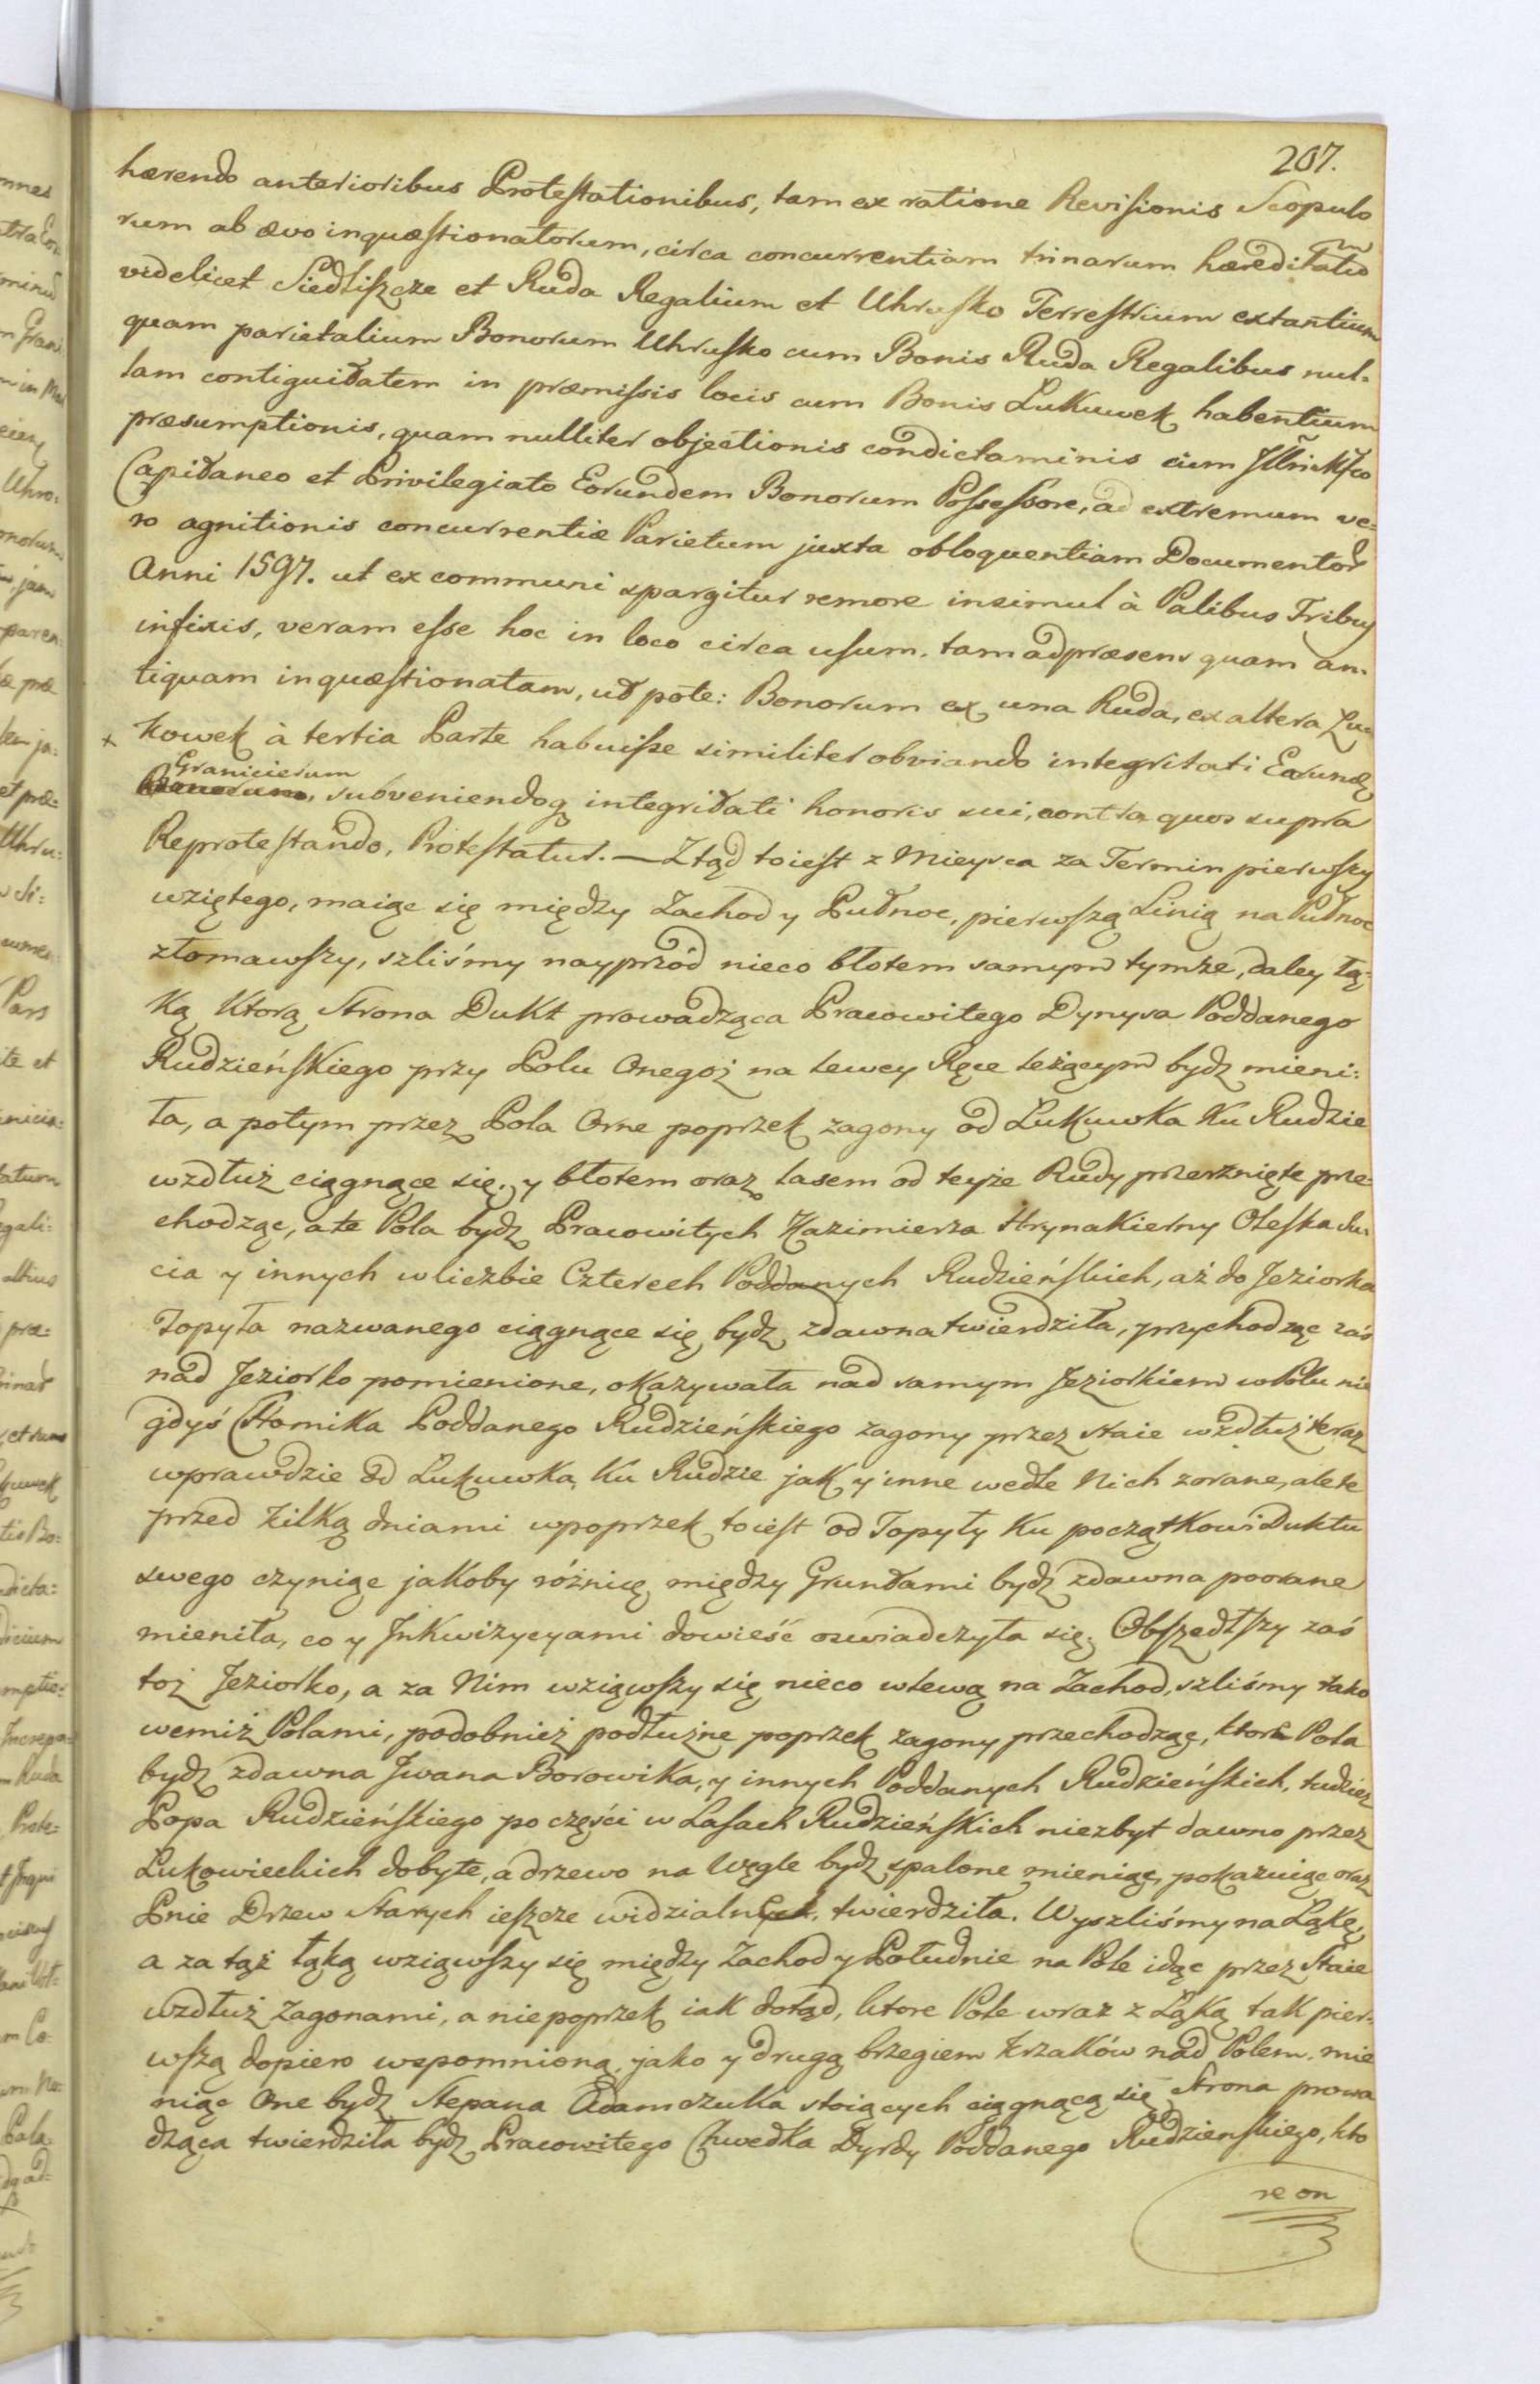 207.
hærendo anterioribus Protestationibus, tam ex ratione Revisionis Scopulo
rum ab ævo inquæstionatorum, circa concurrentiam trinarum hæreditatũ
videlicet Siedliszcze et Ruda Regalium et Uhrusko Terrestrium extantium
quam parietalium Bonorum Uhrusko cum Bonis Ruda Regalibus nul-
lam contiguitatem in præmissis locis cum Bonis Lukuwek habentium
præsumptionis, quam nulliter objectionis condictaminis cum Jllri Mfco
Capitaneo et Privilegiato Eorundem Bonorum Possessore, ad extremum ve=
ro agnitionis concurrentiæ Parietum juxta obloquentiam Documentor
Anni 1597. ut ex communi spargitur remore insimul à Palibus Tribus
infixis, veram esse hoc in loco circa usum, tam ad præsens quam an-
tiquam inquæstionatam, ut pote: Bonorum ex una Ruda, ex altera Lu-
+ kowek à tertia Parte habuisse similiter obviando integritati Earundẽ
Granicierum
Bonorum, subveniendoq integritati honoris sui, contra quos supra
Reprotestando, Protestatur. — Ztąd toiest z Mieysca za Termin pierwszy
wziętego, maiąc się między Zachod y Pułnoc, pierwszą Linią na Pułnoc
złomawszy, szliśmy nayprzód nieco błotem samym tymże, daley łą-
ką ktorą Strona Dukt prowadząca Pracowitego Dynysa Poddanego
Rudzieńskiego przy Polu Onegoż na lewey Ręce leżącym bydz mieni:
ła, a potym przez Pola Orne poprzek zagony od Lukuwka ku Rudzie
wzdłuż ciągnące się, y błotem oraz lasem od teyże Rudy przerznięte prze-
chodząc, a te Pola bydz Pracowitych Kazimierza Hrynakierny Oleska Su-
cia y innych w liczbie Czterech Poddanych Rudzieńskich, aż do Jeziorka
Topyła nazwanego ciągnące się bydz zdawna twierdziła, przychodząc zaś
nad Jeziorko pomienione, okazywała nad samym Jeziorkiem w Polu nie
gdyś Chomika Poddanego Rudzieńskiego zagony przez staie wzdłuż teraz
wprawdzie od Lukuwka, ku Rudzie jak y inne wedle Nich zorane, ale te
przed kilką dniami wpoprzek toiest od Topyły ku początkowi Duktu
swego czyniąc jakoby różnicę między Gruntami bydz zdawna poorane
mieniła, co y Jnkwizycyami dowieść oswiadczyła się. Obszedłszy zaś
toż Jeziorko, a za Nim wziąwszy się nieco wlewą na Zachod, szliśmy tako
wemiż Polami, podobnież podłużne poprzek zagony przechodząc, ktore Pola
bydz zdawna Jwana Borowika, y innych Poddanych Rudzieńskich, tudzież
Popa Rudzieńskiego po części w Lasach Rudzieńskich niezbyt dawno przez
Lukowieckich dobyte, a drzewo na Węgle bydz spalone mieniąc, pokazuiąc oraz
Pnie Drzew Starych ieszcze widzialnych, twierdziła. Wyszliśmy na Łąkę,
a za tąż łąką wziąwszy się między Zachod y Południe na Pole idąc przez Staie
wzdłuż Zagonami, a niepoprzek iak dotąd, ktore Pole wraz z Łąką tak pier-
wszą dopiero wspomnioną, jako y drugą brzegiem krzaków nad Polem, mie
niąc One bydz Stepana Adamczuka stoiących ciągnącą się Strona prowa
dząca twierdziła bydz Pracowitego Chwedka Dyrdy Poddanego Rudzieńskiego, kto
re on